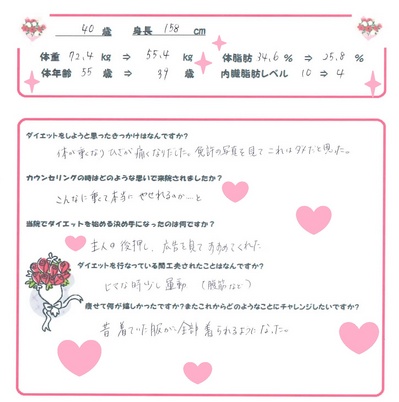 40 歳 身長 158 cm
体重 72.4 kg ⇒ 55.4 kg 体脂肪 34.6 % ⇒ 25.8 %
体年齢 55 歳 ⇒ 39 歳 内臓脂肪レベル 10 ⇒ 4
ダイエットをしようと思ったきっかけはなんですか?
体が重くなり ひざが痛くなりだした。免許の写真を見て これはダメだと思った。
カウンセリングの時はどのような思いで来院されましたか?
こんなに重くて本当に やせれるのか…と
当院でダイエットを始める決め手になったのは何ですか?
主人の後押し、広告を見て すすめてくれた
ダイエットを行なっている間工夫されたことはなんですか?
ひまな時少し運動 (腹筋など)
痩せて何が嬉しかったですか?またこれからどのようなことにチャレンジしたいですか?
昔 着ていた服が、全部 着られるようになった。